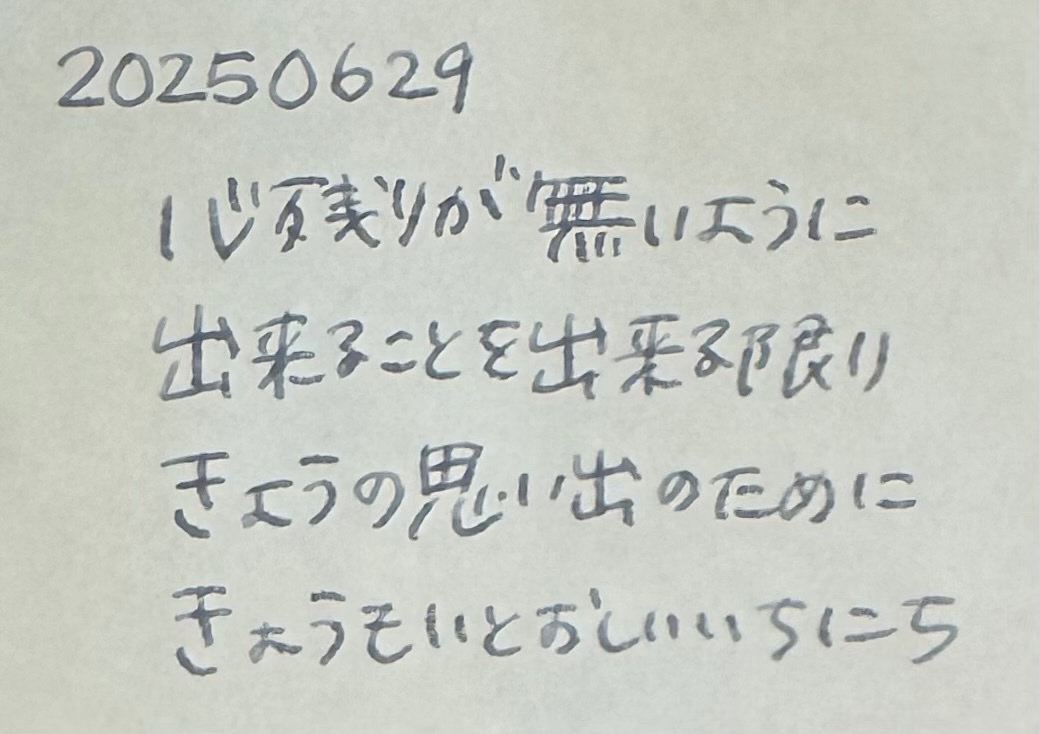 20250629
心残りが無いように
出来ることを出来る限り
きょうの思い出のために
きょうもいとおしいいちにち